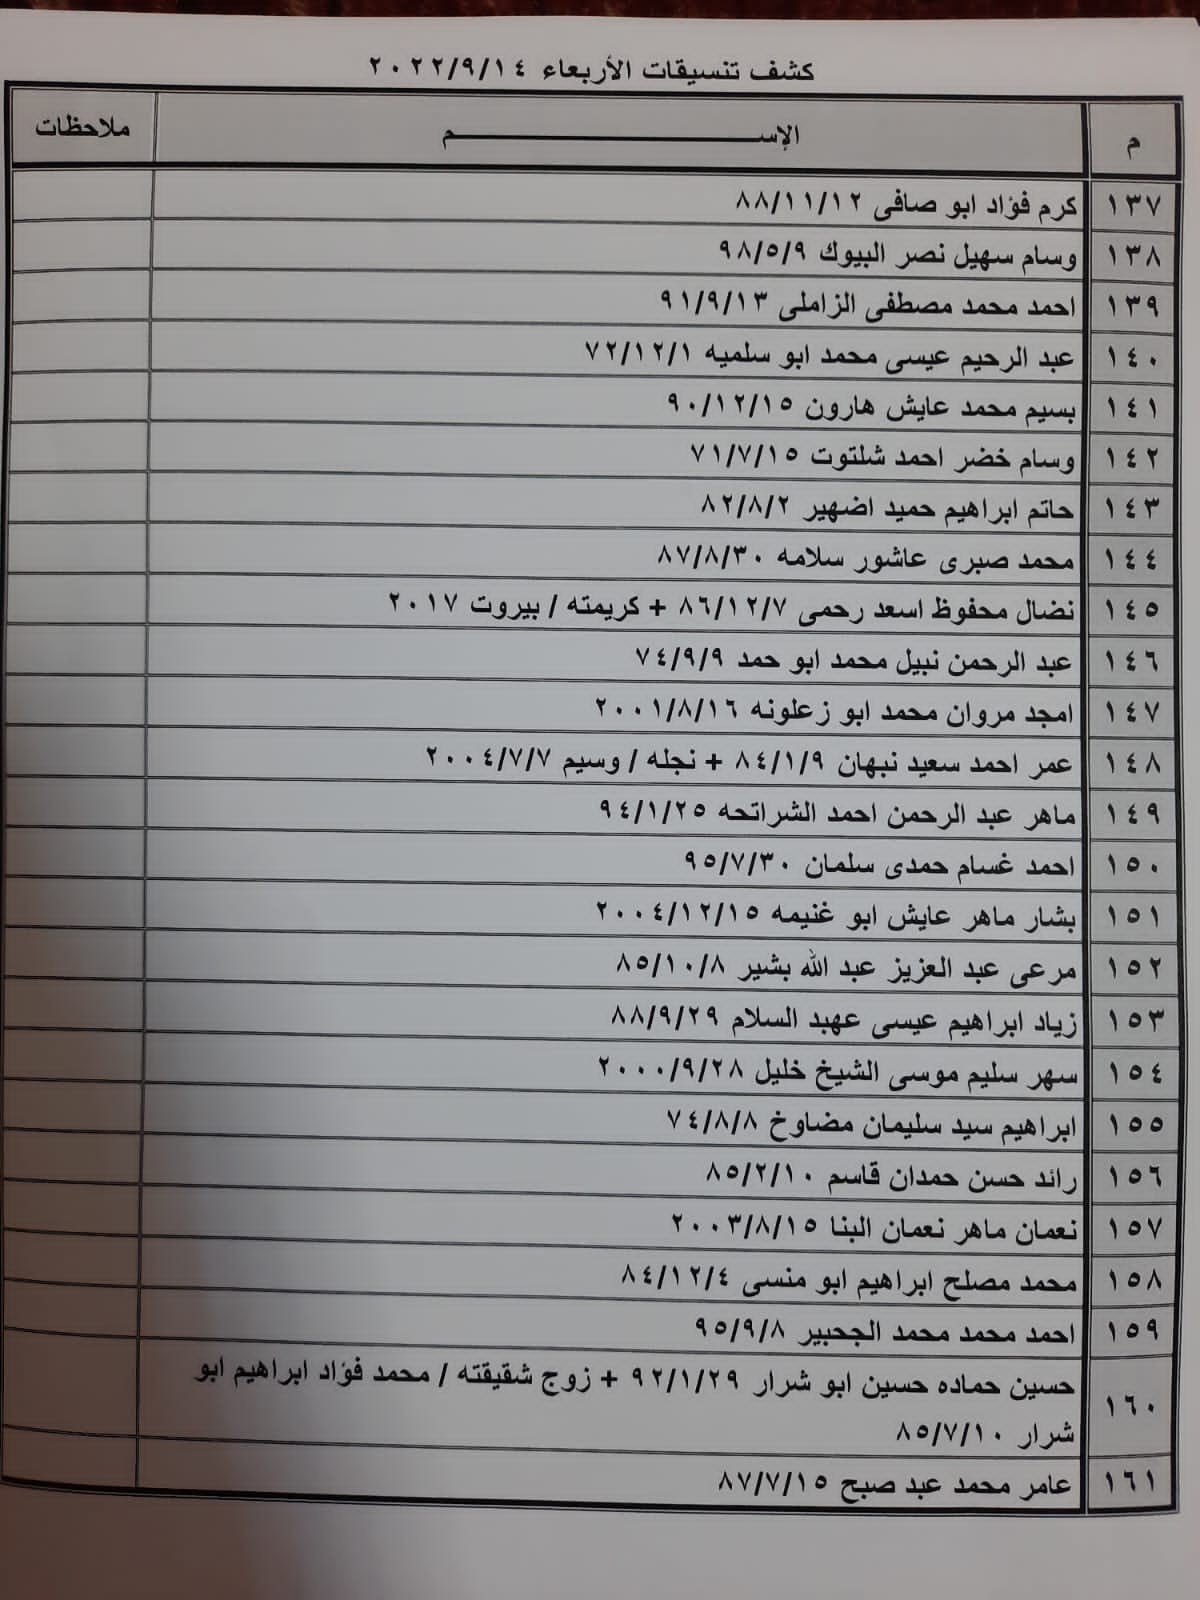 كشف تنسيقات الأربعاء ٢٠٢٢/٩/١٤
م الإســـــــــــم ملاحظات
١٣٧ كرم فؤاد ابو صافى ٨٨/١١/١٢
١٣٨ وسام سهيل نصر البيوك ٩٨/٥/٩
١٣٩ احمد محمد مصطفى الزاملى ٩١/٩/١٣
١٤٠ عبد الرحيم عيسى محمد ابو سلميه ٧٢/١٢/١
١٤١ بسيم محمد عايش هارون ٩٠/١٢/١٥
١٤٢ وسام خضر احمد شلتوت ٧١/٧/١٥
١٤٣ حاتم ابراهيم حميد اضهير ٨٢/٨/٢
١٤٤ محمد صبرى عاشور سلامه ٨٧/٨/٣٠
١٤٥ نضال محفوظ اسعد رحمى ٨٦/١٢/٧ + كريمته / بيروت ٢٠١٧
١٤٦ عبد الرحمن نبيل محمد ابو حمد ٧٤/٩/٩
١٤٧ امجد مروان محمد ابو زعلونه ٢٠٠١/٨/١٦
١٤٨ عمر احمد سعيد نبهان ٨٤/١/٩ + نجله / وسيم ٢٠٠٤/٧/٧
١٤٩ ماهر عبد الرحمن احمد الشراتحه ٩٤/١/٢٥
١٥٠ احمد غسام حمدى سلمان ٩٥/٧/٣٠
١٥١ بشار ماهر عايش ابو غنيمه ٢٠٠٤/١٢/١٥
١٥٢ مرعى عبد العزيز عبد الله بشير ٨٥/١٠/٨
١٥٣ زياد ابراهيم عيسى عهبد السلام ٨٨/٩/٢٩
١٥٤ سهر سليم موسى الشيخ خليل ٢٠٠٠/٩/٢٨
١٥٥ ابراهيم سيد سليمان مضاوخ ٧٤/٨/٨
١٥٦ رائد حسن حمدان قاسم ٨٥/٢/١٠
١٥٧ نعمان ماهر نعمان البنا ٢٠٠٣/٨/١٥
١٥٨ محمد مصلح ابراهيم ابو منسى ٨٤/١٢/٤
١٥٩ احمد محمد محمد الجحبير ٩٥/٩/٨
١٦٠ حسين حماده حسين ابو شرار ٩٢/١/٢٩ + زوج شقيقته / محمد فؤاد ابراهيم ابو
شرار ٨٥/٧/١٠
١٦١ عامر محمد عبد صبح ٨٧/٧/١٥